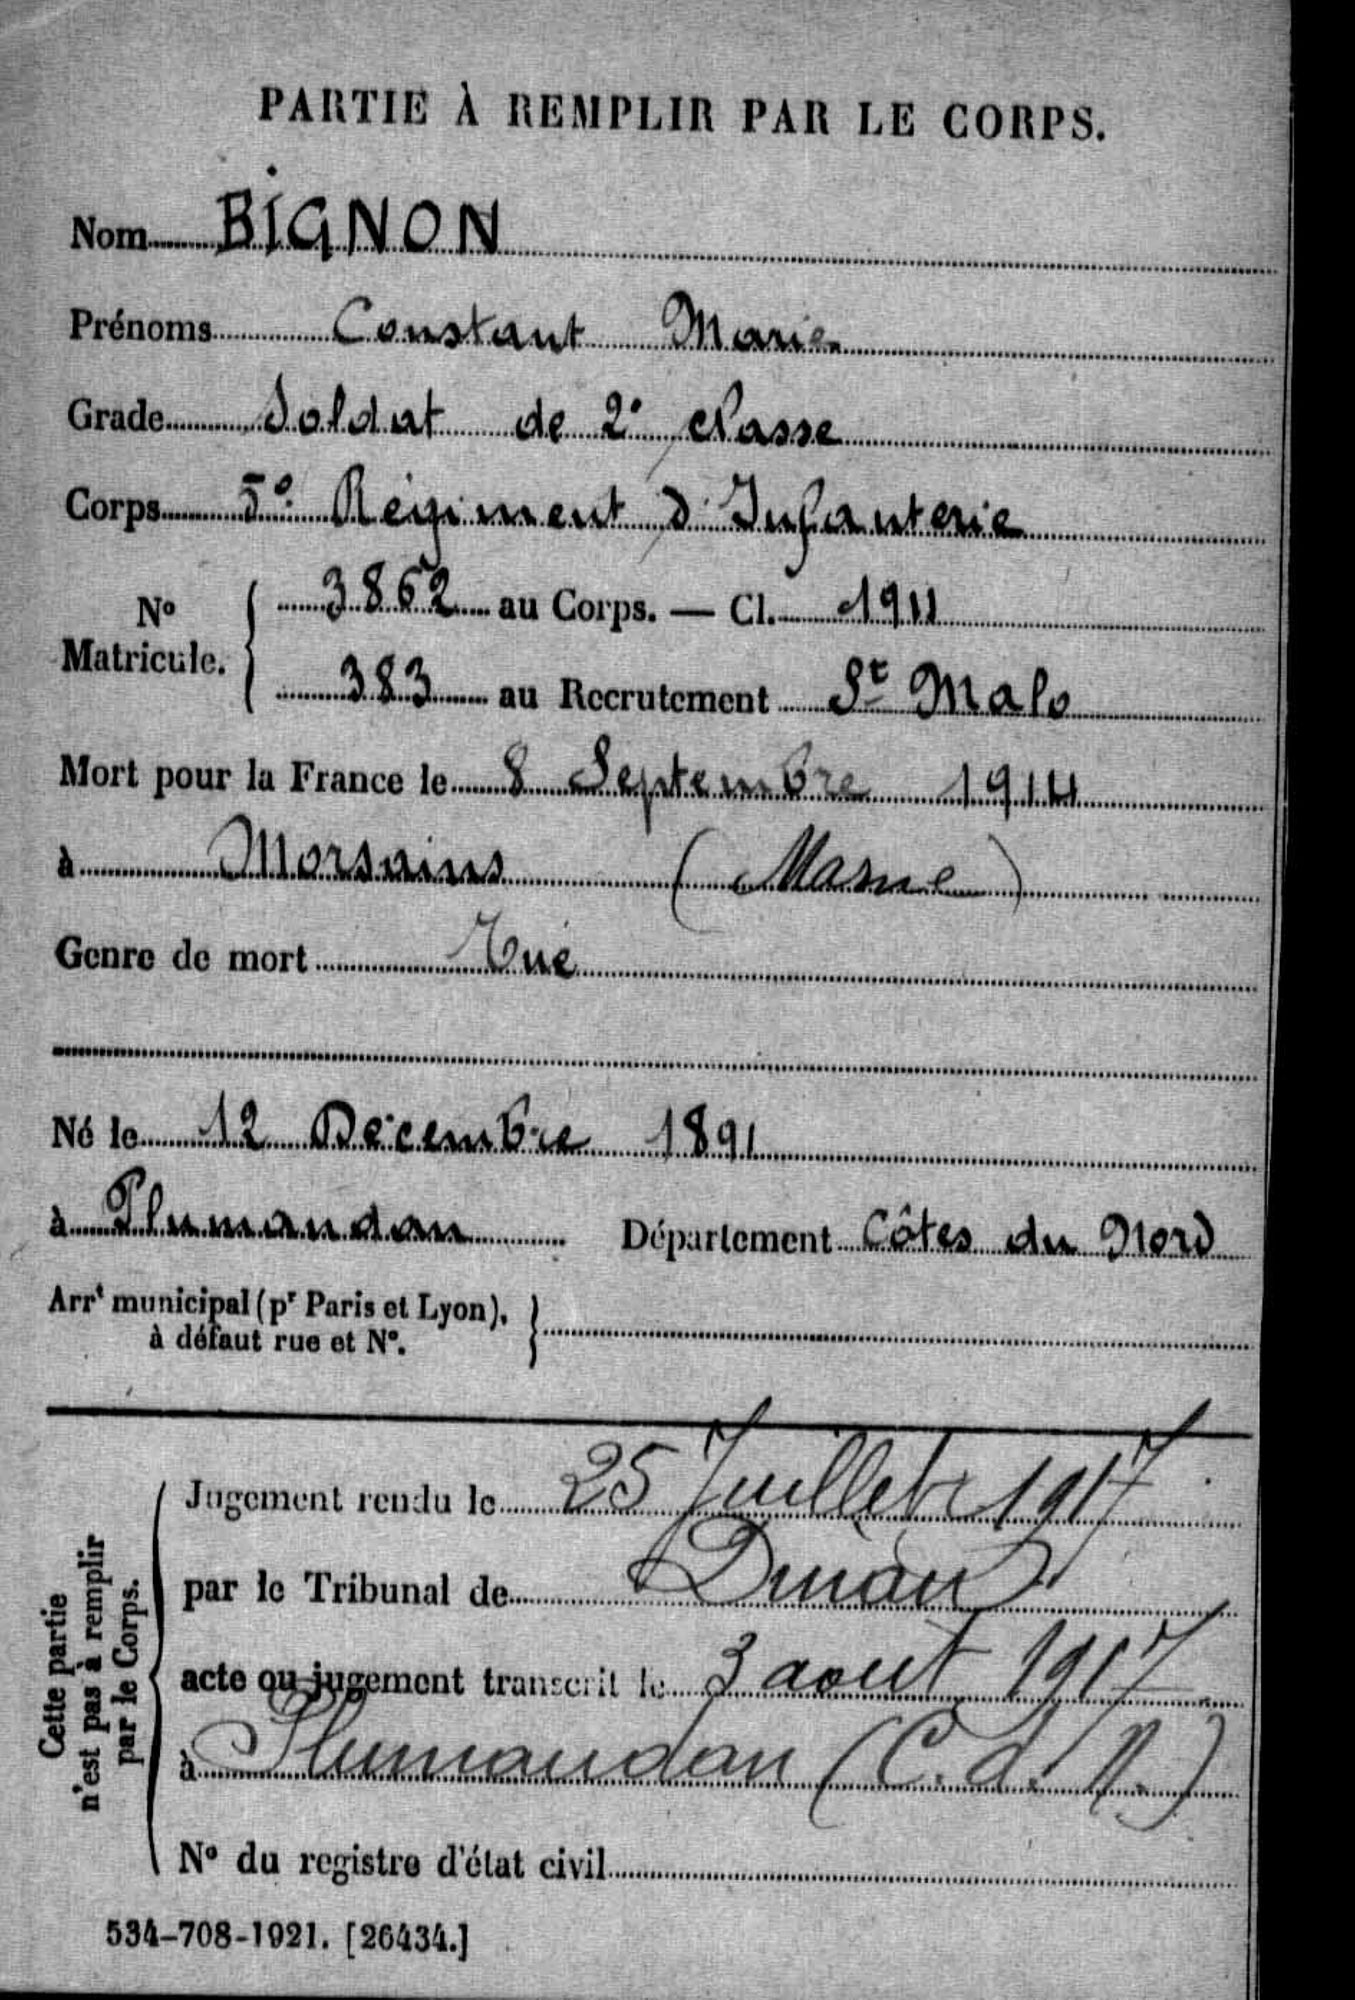 PARTIE À REMPLIR PAR LE CORPS.
Nom BIGNON
Prénoms Constant Marie
Grade Soldat de 2e classe
Corps 5e Régiment d'Infanterie
No Matricule. { 3862 au Corps. — Cl. 1911
383 au Recrutement St Malo
Mort pour la France le 8 Septembre 1914
à Morsains (Marne)
Genre de mort Tué
Né le 12 Décembre 1891
à Plumaudan Département Côtes du Nord
Arrt municipal (pr Paris et Lyon), }
à défaut rue et No.
Cette partie
n'est pas à remplir
par le Corps.
Jugement rendu le 25 Juillet 1917
par le Tribunal de Dinan
acte ou jugement transcrit le 3 aout 1917
à Plumaudan (C. d. N.)
No du registre d'état civil
534-708-1921. [26434.]